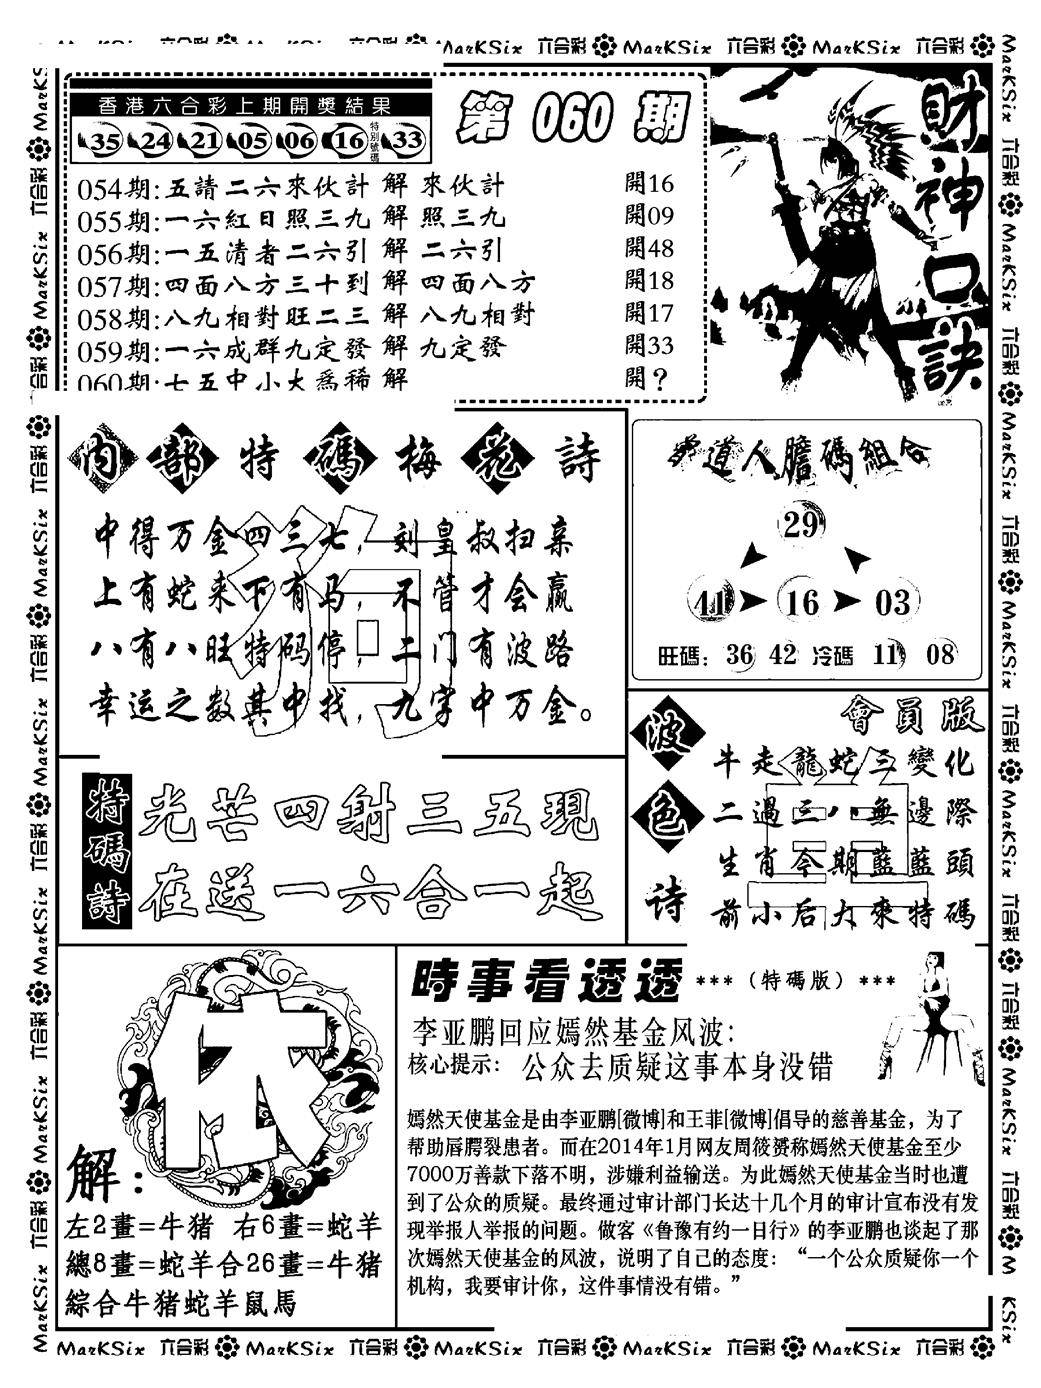 MarKSix 六合彩 MarKSix 六合彩 MarKSix 六合彩
香港六合彩上期開獎結果
35 24 21 05 06 16 特別號碼 33
第 060 期
財神口訣
054期:五請二六來伙計 解 來伙計 開16
055期:一六紅日照三九 解 照三九 開09
056期:一五清者二六引 解 二六引 開48
057期:四面八方三十到 解 四面八方 開18
058期:八九相對旺二三 解 八九相對 開17
059期:一六成群九定發 解 九定發 開33
060期:七五中小大為稀 解 開?
內部特碼梅花詩
狗
中得万金四三七,刘皇叔扫亲
上有蛇来下有马,不管才会赢
八有八旺特码停,二门有波路
幸运之数其中找,九字中万金。
道人膽碼組合
29
41 16 03
旺碼: 36 42 冷碼 11 08
特碼詩
光芒四射三五現
在送一六合一起
波色诗
會員版
牛走龍蛇三變化
二過三八無邊際
生肖今期藍藍頭
前小后大來特碼
依
解:
左2畫=牛猪 右6畫=蛇羊
總8畫=蛇羊合26畫=牛猪
綜合牛猪蛇羊鼠馬
時事看透透 ***(特碼版)***
李亚鹏回应嫣然基金风波:
核心提示: 公众去质疑这事本身没错
嫣然天使基金是由李亚鹏[微博]和王菲[微博]倡导的慈善基金，为了
帮助唇腭裂患者。而在2014年1月网友周筱赟称嫣然天使基金至少
7000万善款下落不明，涉嫌利益输送。为此嫣然天使基金当时也遭
到了公众的质疑。最终通过审计部门长达十几个月的审计宣布没有发
现举报人举报的问题。做客《鲁豫有约一日行》的李亚鹏也谈起了那
次嫣然天使基金的风波，说明了自己的态度：“一个公众质疑你一个
机构，我要审计你，这件事情没有错。”
MarKSix 六合彩 MarKSix 六合彩 MarKSix 六合彩 MarKSix 六合彩 MarKSix 六合彩